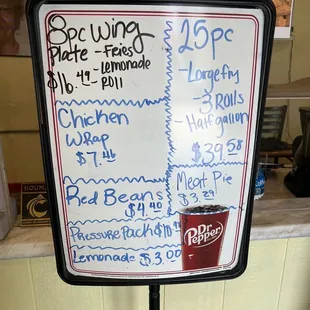 8pc Wing
Plate - Fries
- Lemonade
- Roll
$16.49
Chicken
Wrap
$7.46
Red Beans
$4.40
Pressure Pack
Lemonade $3.00
25pc
- Large fry
- 3 Rolls
- Half gallon
$39.58
Meat Pie
$3.29
Dr Pepper